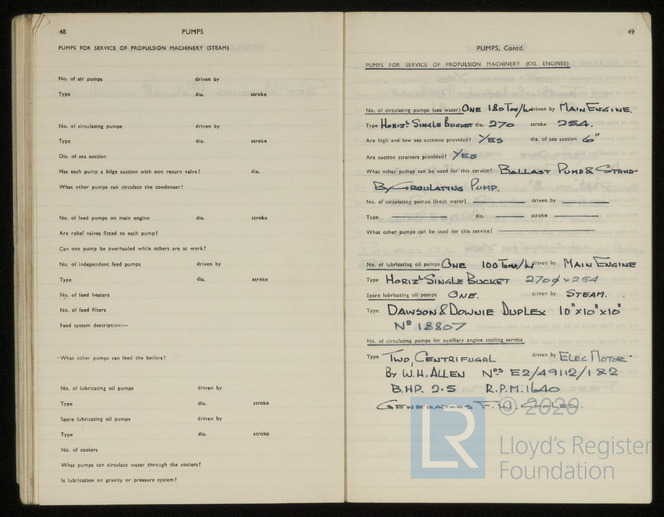 48
PUMPS
PUMPS FOR SERVICE OF PROPULSION MACHINERY (STEAM)
No. of air pumps driven by
Type dia. stroke
No. of circulating pumps driven by
Type dia. stroke
Dia. of sea suction
Has each pump a bilge suction with non return valve? dia.
What other pumps can circulate the condenser?
No. of feed pumps on main engine dia. stroke
Are relief valves fitted to each pump?
Can one pump be overhauled while others are at work?
No. of independent feed pumps driven by
Type dia. stroke
No. of feed heaters
No. of feed filters
Feed system description:—
What other pumps can feed the boilers?
No. of lubricating oil pumps driven by
Type dia. stroke
Spare lubricating oil pumps driven by
Type dia. stroke
No. of coolers
What pumps can circulate water through the coolers?
Is lubrication on gravity or pressure system?
49
PUMPS, Contd.
PUMPS FOR SERVICE OF PROPULSION MACHINERY (OIL ENGINES)
No. of circulating pumps (sea water) ONE 180 Tons/hr driven by MAIN ENGINE.
Type HORIZL SINGLE BUCKET dia. 270 stroke 254.
Are high and low sea suctions provided? YES dia. of sea suction 6"
Are suction strainers provided? YES
What other pumps can be used for this service? BALLAST PUMP & STAND-
BY CIRCULATING PUMP.
No. of circulating pumps (fresh water) driven by
Type dia. stroke
What other pumps can be used for this service?
No. of lubricating oil pumps ONE 100 TONS/hr driven by MAIN ENGINE
Type HORIZL SINGLE BUCKET 270φ x 254
Spare lubricating oil pumps ONE. driven by STEAM.
Type DAWSON & DOWNIE DUPLEX 10"x10"x10"
No 18807
No. of circulating pumps for auxiliary engine cooling service
Type TWO CENTRIFUGAL driven by ELEC MOTOR.
BY W.H. ALLEN Nos E2/49112/1&2
B.H.P. 2.5 R.P.M. 1640
GENERATORS F.W. COOLED.
© 2020
LR
Lloyd's Register
Foundation